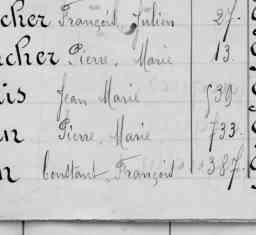 cher François, Julien 27.
ucher Pierre, Marie 13.
is Jean Marie 539
n Pierre, Marie 733.
n Constant, François 387.